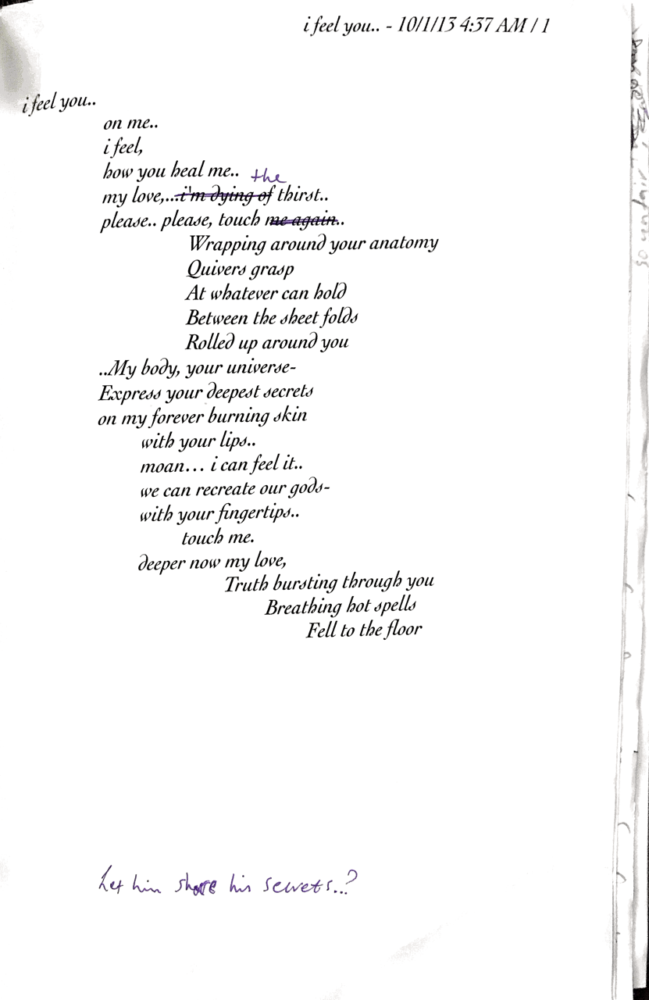 i feel you.. - 10/1/13 4:37 AM / 1
i feel you..
on me..
i feel,
how you heal me..
the
my love,...i'm dying of thirst..
please.. please, touch me again..
Wrapping around your anatomy
Quivers grasp
At whatever can hold
Between the sheet folds
Rolled up around you
..My body, your universe-
Express your deepest secrets
on my forever burning skin
with your lips..
moan... i can feel it..
we can recreate our gods-
with your fingertips..
touch me.
deeper now my love,
Truth bursting through you
Breathing hot spells
Fell to the floor
Let him share his secrets...?